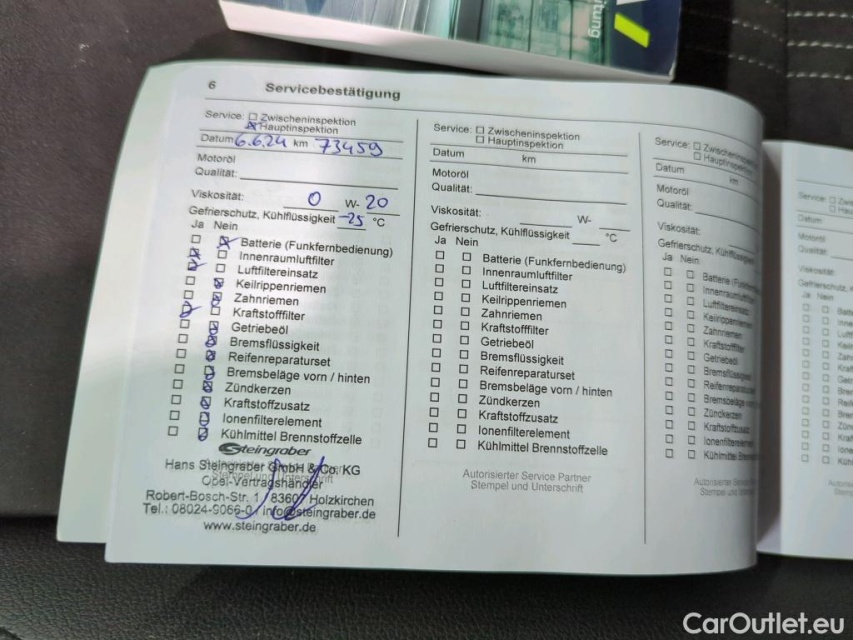 itung
6 Servicebestätigung
Service: Zwischeninspektion
Hauptinspektion
Datum 6.6.24 km 73459
Motoröl
Qualität:
Viskosität: 0 W- 20
Gefrierschutz, Kühlflüssigkeit -25 °C
Ja Nein
Batterie (Funkfernbedienung)
Innenraumluftfilter
Luftfiltereinsatz
Keilrippenriemen
Zahnriemen
Kraftstofffilter
Getriebeöl
Bremsflüssigkeit
Reifenreparaturset
Bremsbeläge vorn / hinten
Zündkerzen
Kraftstoffzusatz
Ionenfilterelement
Kühlmittel Brennstoffzelle
Steingraber
Hans Steingraber GmbH & Co. KG
Opel-Vertragshändler
Robert-Bosch-Str. 1 / 83607 Holzkirchen
Tel.: 08024-9066-0 / info@steingraber.de
www.steingraber.de
Service: Zwischeninspektion
Hauptinspektion
Datum km
Motoröl
Qualität:
Viskosität: W-
Gefrierschutz, Kühlflüssigkeit °C
Ja Nein
Batterie (Funkfernbedienung)
Innenraumluftfilter
Luftfiltereinsatz
Keilrippenriemen
Zahnriemen
Kraftstofffilter
Getriebeöl
Bremsflüssigkeit
Reifenreparaturset
Bremsbeläge vorn / hinten
Zündkerzen
Kraftstoffzusatz
Ionenfilterelement
Kühlmittel Brennstoffzelle
Autorisierter Service Partner
Stempel und Unterschrift
Service: Zwischeninspe
Hauptinspektion
Datum km
Motoröl
Qualität:
Viskosität:
Gefrierschutz, Kühlflüssig
Ja Nein
Batterie (Funkfernb
Innenraumluft
Luftfiltereinsatz
Keilrippenriem
Zahnriemen
Kraftstofffilter
Getriebeöl
Bremsflüssig
Reifenrepara
Bremsbeläge
Zündkerzen
Kraftstoffzus
Ionenfilterele
Kühlmittel Bren
Autorisierter Servi
Stempel und Unt
Service:
Datum
Motoröl
Qualität:
Viskosität:
Gefrierschutz
Ja Nein
CarOutlet.eu